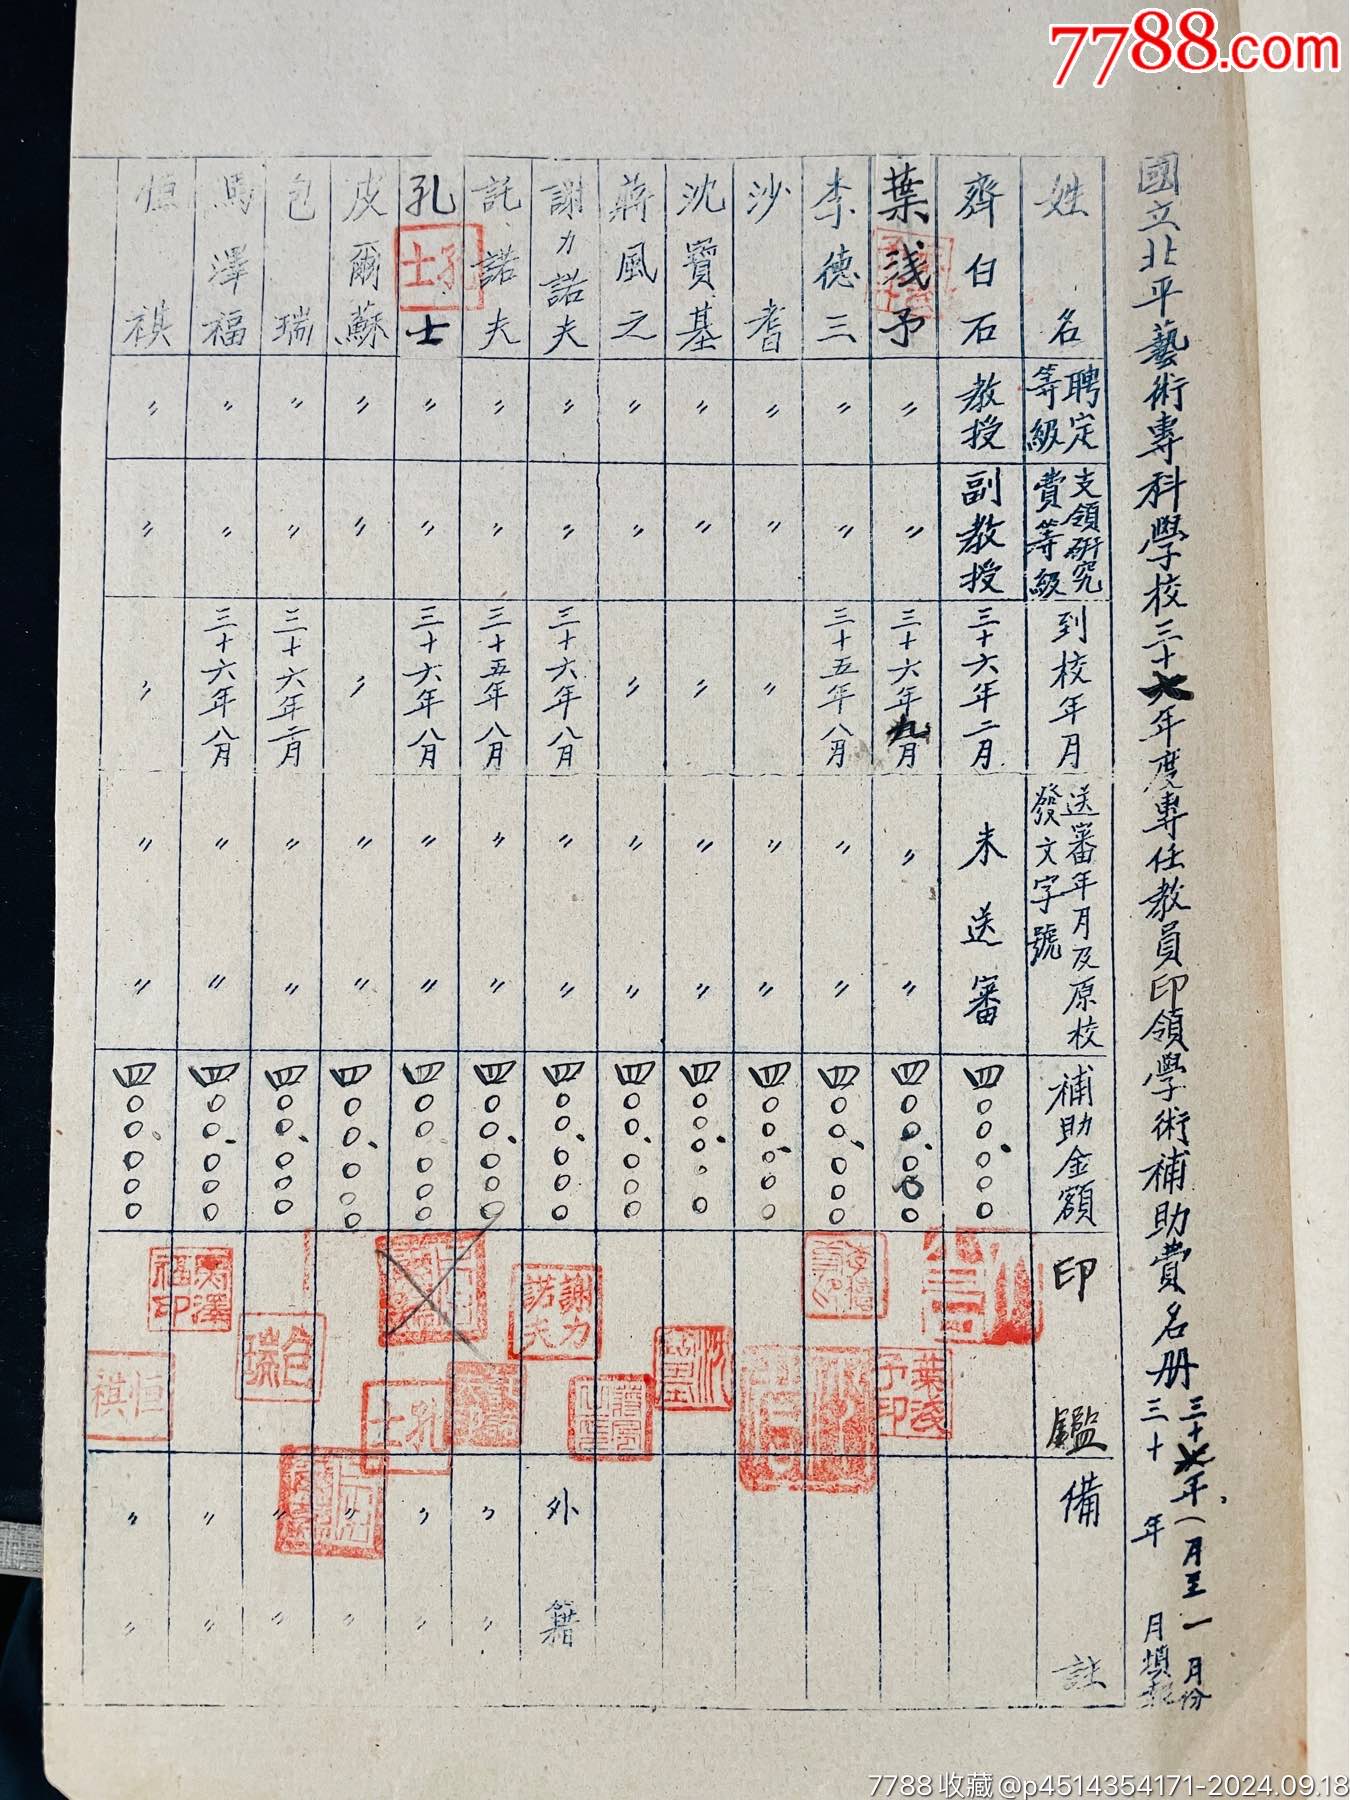 7788.com
國立北平藝術專科學校三十七年度專任教員印領學術補助費名册
三十七年一月至一月份
三十 年 月填報
姓名 聘定等級 支領研究費等級 到校年月 送審年月及原校發文字號 補助金額 印鑑 備註
齊白石 教授 副教授 三十六年二月 未送審 四〇〇.〇〇〇
葉淺予 〃 〃 三十六年九月 〃 〃 四〇〇.〇〇〇 葉淺予印
李德三 〃 〃 三十五年八月 〃 〃 四〇〇.〇〇〇
沙耆 〃 〃 〃 〃 〃 四〇〇.〇〇〇
沈寶基 〃 〃 〃 〃 〃 四〇〇.〇〇
蔣風之 〃 〃 〃 〃 〃 四〇〇.〇〇〇
謝力諾夫 〃 〃 三十六年八月 〃 〃 四〇〇.〇〇〇 謝力諾夫 外籍
託諾夫 〃 〃 三十五年八月 〃 〃 四〇〇.〇〇〇 〃 〃
孔士 孔士 〃 〃 三十六年八月 〃 〃 四〇〇.〇〇〇 孔士 〃 〃
皮爾蘇 〃 〃 〃 〃 〃 四〇〇.〇〇〇 〃 〃
包瑞 〃 〃 三十六年二月 〃 〃 四〇〇.〇〇〇 包瑞 〃 〃
馬澤福 〃 〃 三十六年八月 〃 〃 四〇〇.〇〇〇 馬澤福印 〃 〃
恒祺 〃 〃 〃 〃 〃 四〇〇.〇〇〇 恒祺 〃 〃
7788收藏@p4514354171-2024.09.18